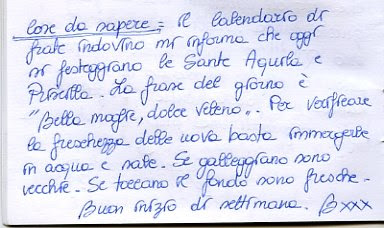 cose da sapere = il calendario di
frate indovino mi informa che oggi
si festeggiano le Sante Aquila e
Priscilla. La frase del giorno è
"Bella moglie, dolce veleno". Per verificare
la freschezza delle uova basta immergerle
in acqua e sale. Se galleggiano sono
vecchie. Se toccano il fondo sono fresche.
Buon inizio di settimana. Bxxx